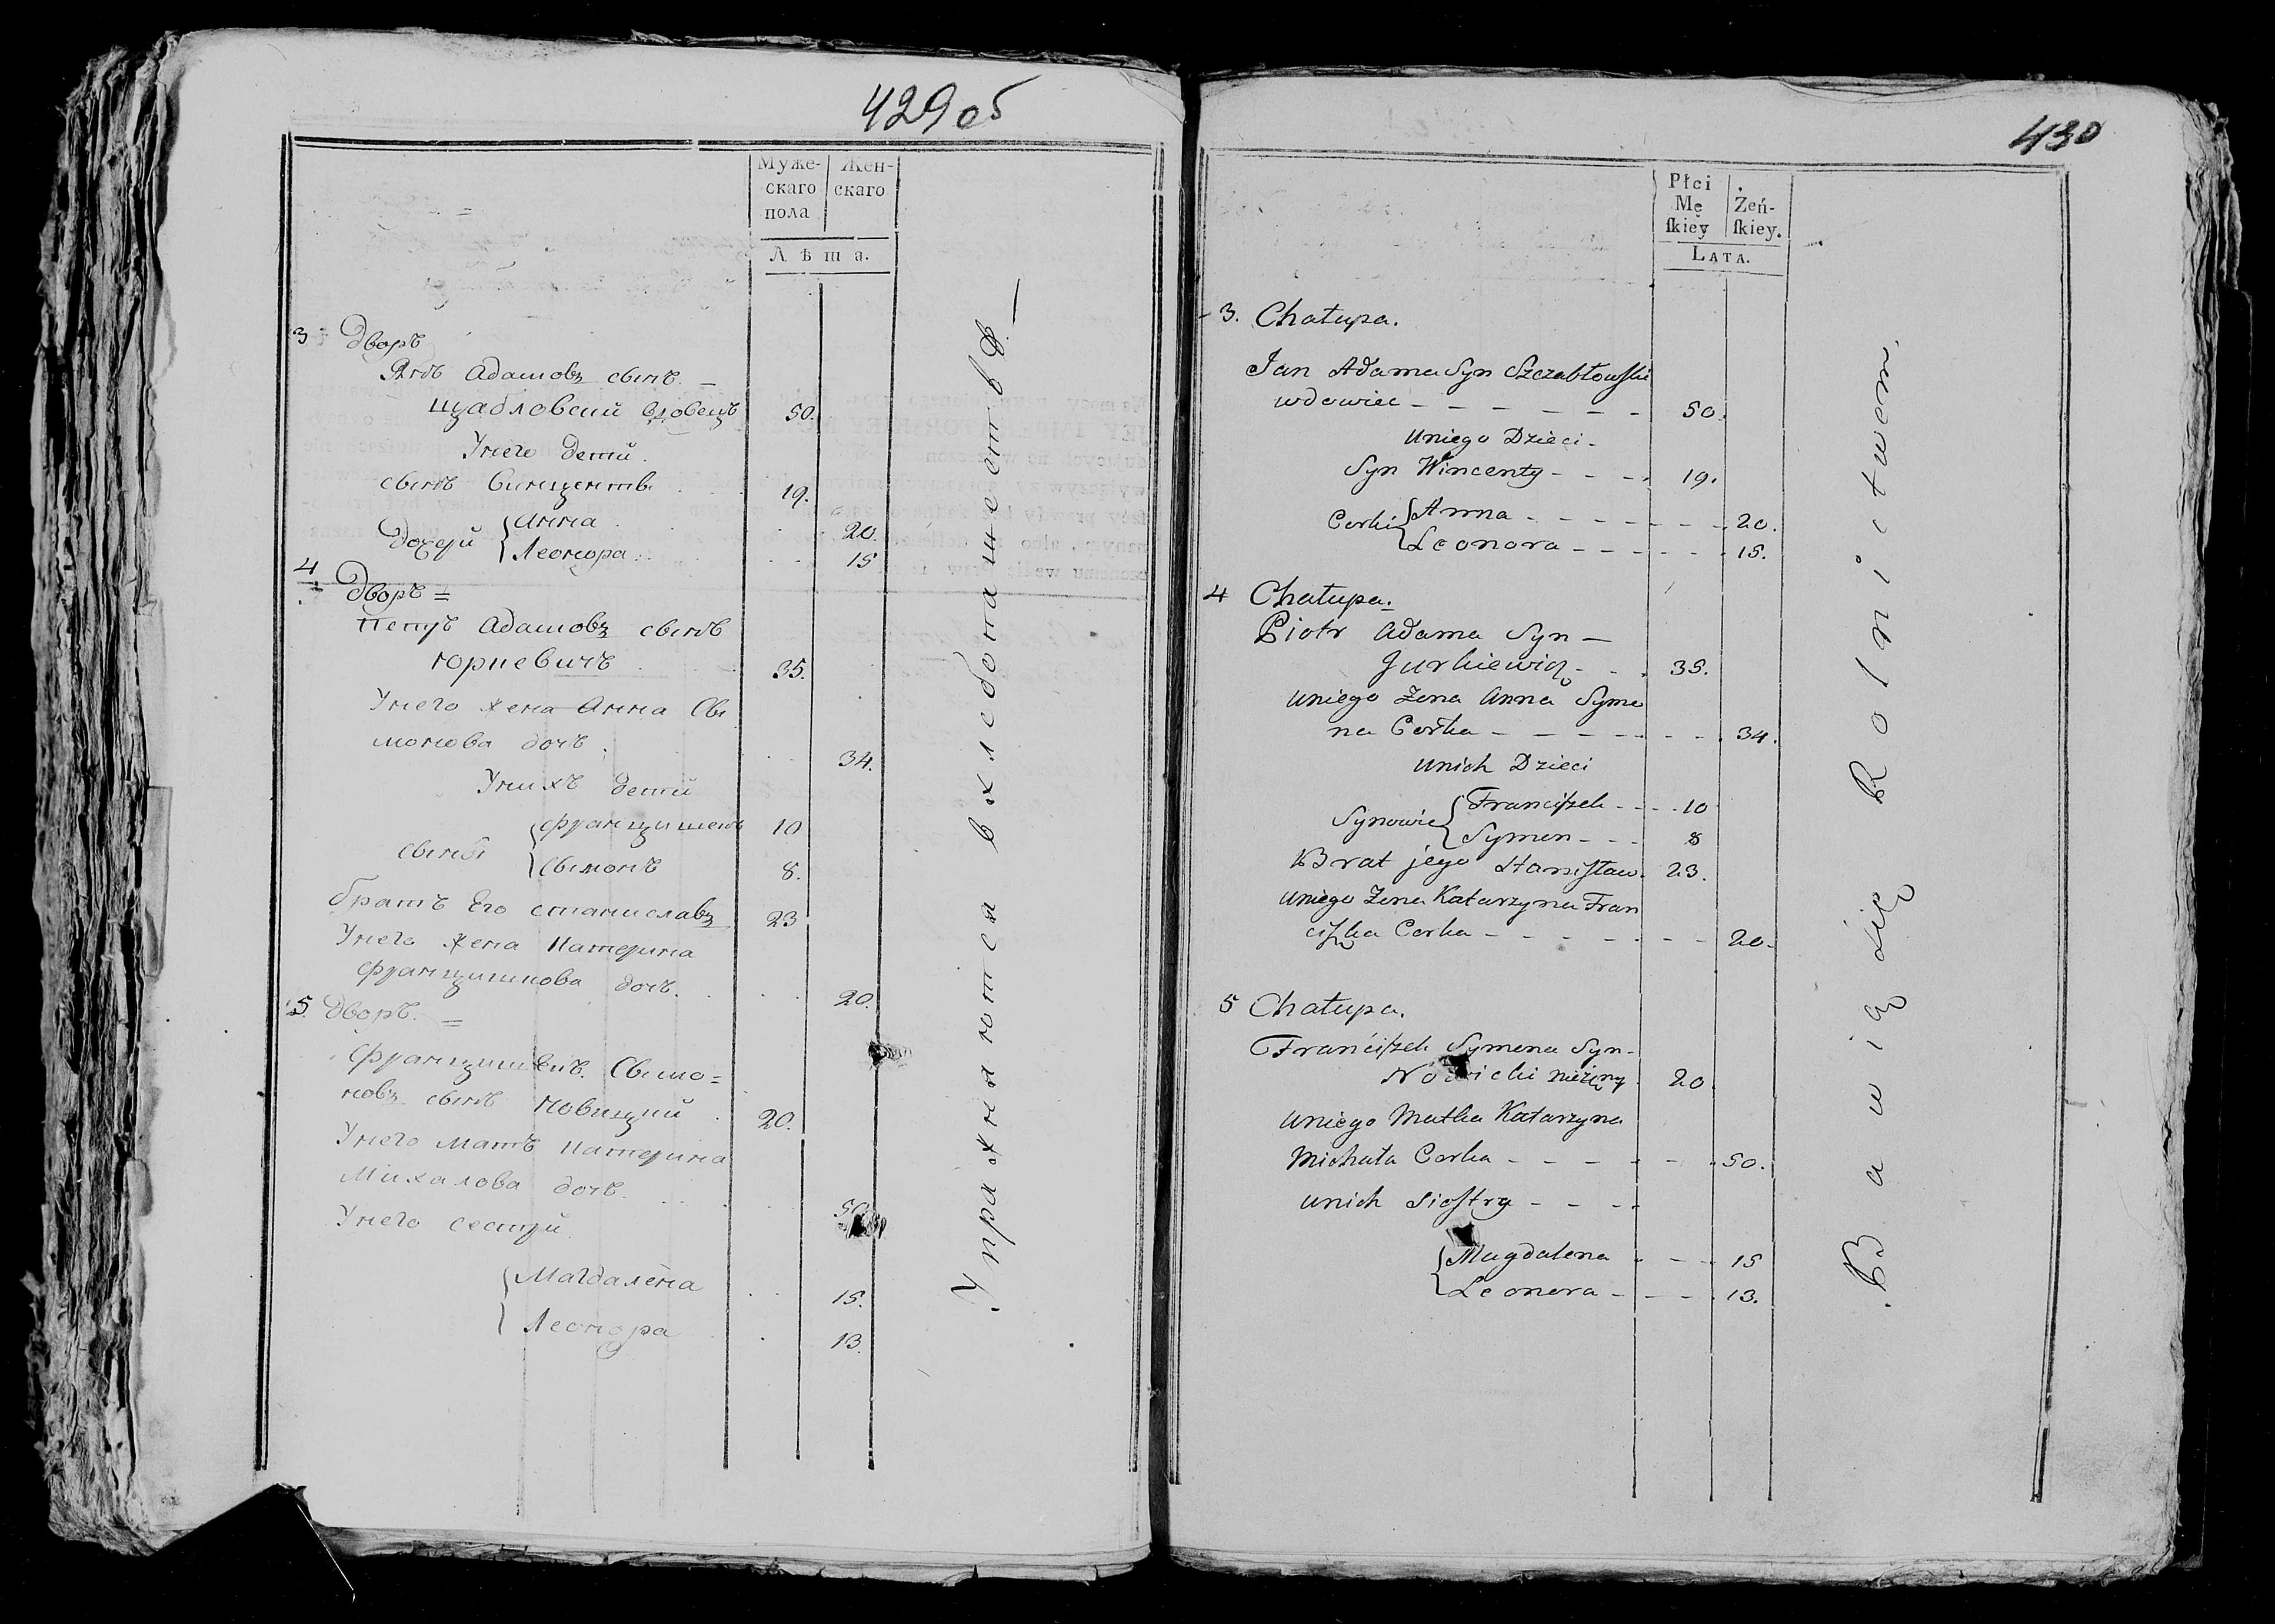 429 об
Муже- Жен-
скаго скаго
пола
Лѣта.
3 Дворъ
Янъ Адамовъ сынъ
Щабловский вдовецъ 50.
Унего дети.
сынъ Винценты 19.
дочери { Анна 20.
Леонора 15
4 Дворъ =
Петръ Адамовъ сынъ
Юркевичъ 35.
Унего жена Анна Сы
монова дочь 34.
Унихъ дети
сыны { Францишекъ 10
Сымонъ 8.
братъ Его станиславъ 23
Унего жена Катерина
Францишкова дочь. 20.
5. Дворъ. =
Францишекъ Сымо=
новъ сынъ Новицкий 20.
Унего мать Катерина
Михалова дочь 50
Унего сестры
{ Магдалена 15.
Леонора 13.
Упражняются в хлебопашестве.—
430
Płci Żeń-
Mę ſkiey.
ſkiey
LATA.
3. Chałupa.
Jan Adama Syn Szczabłowski
wdowiec - - - - - - - 50.
uniego Dzieci -
Syn Wincenty - - - - 19.
Corki { Anna - - - - - - - 20.
Leonora - - - - - - 15.
4 Chałupa.
Piotr Adama Syn —
Jurkiewicz - - . 35.
uniego Zona Anna Syme
na Corka - - - - - - - 34.
unich Dzieci
Synowie { Franciſzek - - - - 10
Symon - - - 8
Brat jego Staniſław. 23.
uniego Zona Katarzyna Fran
ciſzka Corka - - - - - - - 20.
5 Chałupa.
Franciſzek Symena Syn -
Nowicki nieżony 20.
uniego Matka Katarzyna
Michała Corka - - - - - - 50.
unich Sioſtry - - - -
{ Magdalena - - - 15
Leonora - - - - 13.
Bawią się Rolnictwem.